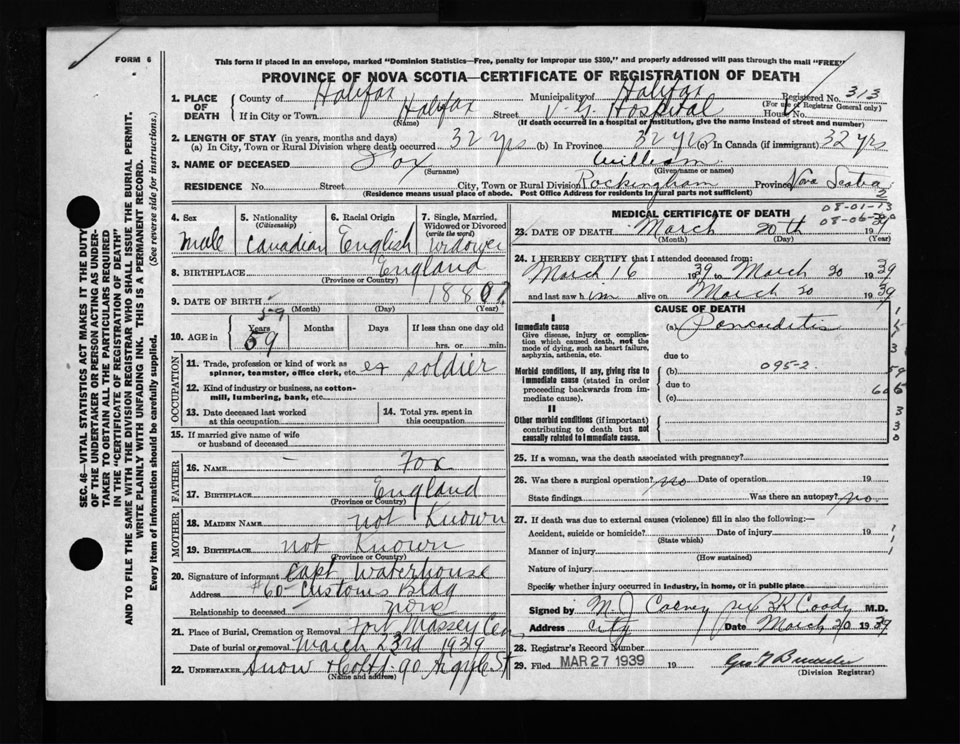 FORM 6
This form if placed in an envelope, marked "Dominion Statistics—Free, penalty for improper use $300," and properly addressed will pass through the mail "FREE"
PROVINCE OF NOVA SCOTIA—CERTIFICATE OF REGISTRATION OF DEATH
1. PLACE OF DEATH County of Halifax Municipality of Halifax Registered No. 313
(For use of Registrar General only)
If in City or Town Halifax Street V. G. Hospital House No.
(Name) (If death occurred in a hospital or institution, give the name instead of street and number)
2. LENGTH OF STAY (in years, months and days)
(a) In City, Town or Rural Division where death occurred 32 yrs (b) In Province 32 yrs (c) In Canada (if immigrant) 32 yrs
3. NAME OF DECEASED Fox William
(Surname) (Given name or names)
RESIDENCE No. Street City, Town or Rural Division Rockingham Province Nova Scotia
(Residence means usual place of abode. Post Office Address for residents in Rural parts not sufficient)
4. Sex male
5. Nationality (Citizenship) Canadian
6. Racial Origin English
7. Single, Married, Widowed or Divorced (write the word) Widower
8. BIRTHPLACE England
(Province or Country)
9. DATE OF BIRTH 1880
(Month) (Day) (Year)
10. AGE in Years 59 Months Days If less than one day old
hrs. or min.
59
OCCUPATION
11. Trade, profession or kind of work as spinner, teamster, office clerk, etc. ex soldier
12. Kind of industry or business, as cotton-mill, lumbering, bank, etc.
13. Date deceased last worked at this occupation
14. Total yrs. spent in this occupation
15. If married give name of wife or husband of deceased
FATHER
16. NAME Fox
17. BIRTHPLACE England
(Province or Country)
MOTHER
18. MAIDEN NAME not Known
19. BIRTHPLACE not Known
(Province or Country)
20. Signature of informant Capt Waterhouse
Address #60 Customs Bldg
Relationship to deceased none
21. Place of Burial, Cremation or Removal Fort Massey Cem
Date of burial or removal March 23rd 1939
22. UNDERTAKER Snow & Co Ltd 90 Argyle St
(Name and address)
MEDICAL CERTIFICATE OF DEATH
08-01-13
08-06-30
23. DATE OF DEATH March 20th 19
(Month) (Day) (Year)
24. I HEREBY CERTIFY that I attended deceased from:
March 16 1939 to March 20 1939
and last saw him alive on March 20 1939
CAUSE OF DEATH
I
Immediate cause
Give disease, injury or complication which caused death, not the mode of dying, such as heart failure, asphyxia, asthenia, etc.
(a) Pancarditis
due to
Morbid conditions, if any, giving rise to immediate cause (stated in order proceeding backwards from immediate cause).
(b) 095-2
due to
(c)
II
Other morbid conditions (if important) contributing to death but not causally related to immediate cause.
25. If a woman, was the death associated with pregnancy?
26. Was there a surgical operation? no Date of operation 19
State findings Was there an autopsy? no
27. If death was due to external causes (violence) fill in also the following:—
Accident, suicide or homicide? Date of injury 19
(State which)
Manner of injury
(How sustained)
Nature of injury
Specify whether injury occurred in industry, in home, or in public place
Signed by B K Coady M.D.
Address City Date March 20 1939
28. Registrar's Record Number
29. Filed MAR 27 1939 19
(Division Registrar)
SEC. 46—VITAL STATISTICS ACT MAKES IT THE DUTY
OF THE UNDERTAKER OR PERSON ACTING AS UNDER-
TAKER TO OBTAIN ALL THE PARTICULARS REQUIRED
IN THE "CERTIFICATE OF REGISTRATION OF DEATH"
AND TO FILE THE SAME WITH THE DIVISION REGISTRAR WHO SHALL ISSUE THE BURIAL PERMIT.
WRITE PLAINLY WITH UNFADING INK. THIS IS A PERMANENT RECORD.
Every item of information should be carefully supplied. (See reverse side for instructions.)